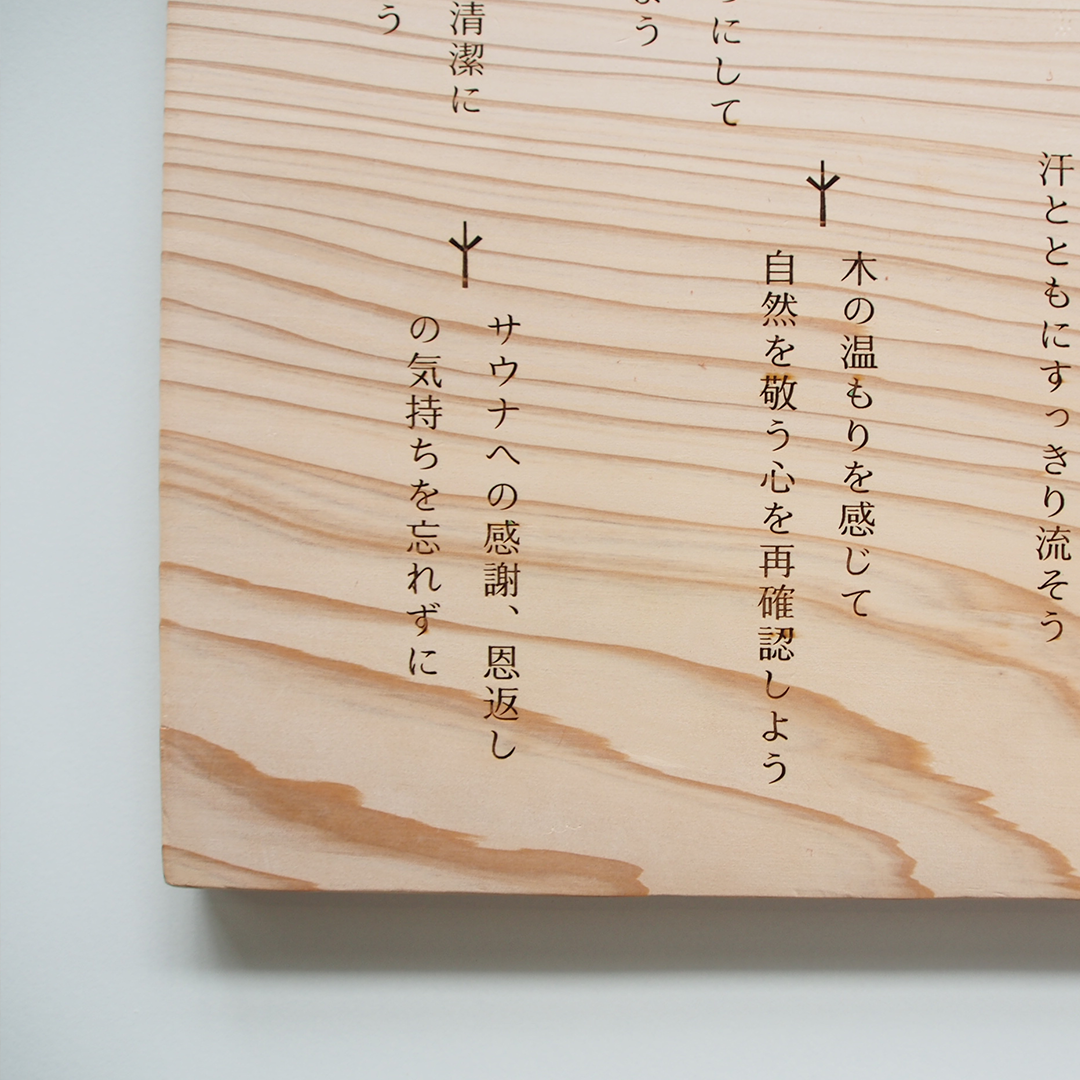 汗とともにすっきり流そう
木の温もりを感じて
自然を敬う心を再確認しよう
にして
よう
清潔に
う
サウナへの感謝、恩返し
の気持ちを忘れずに